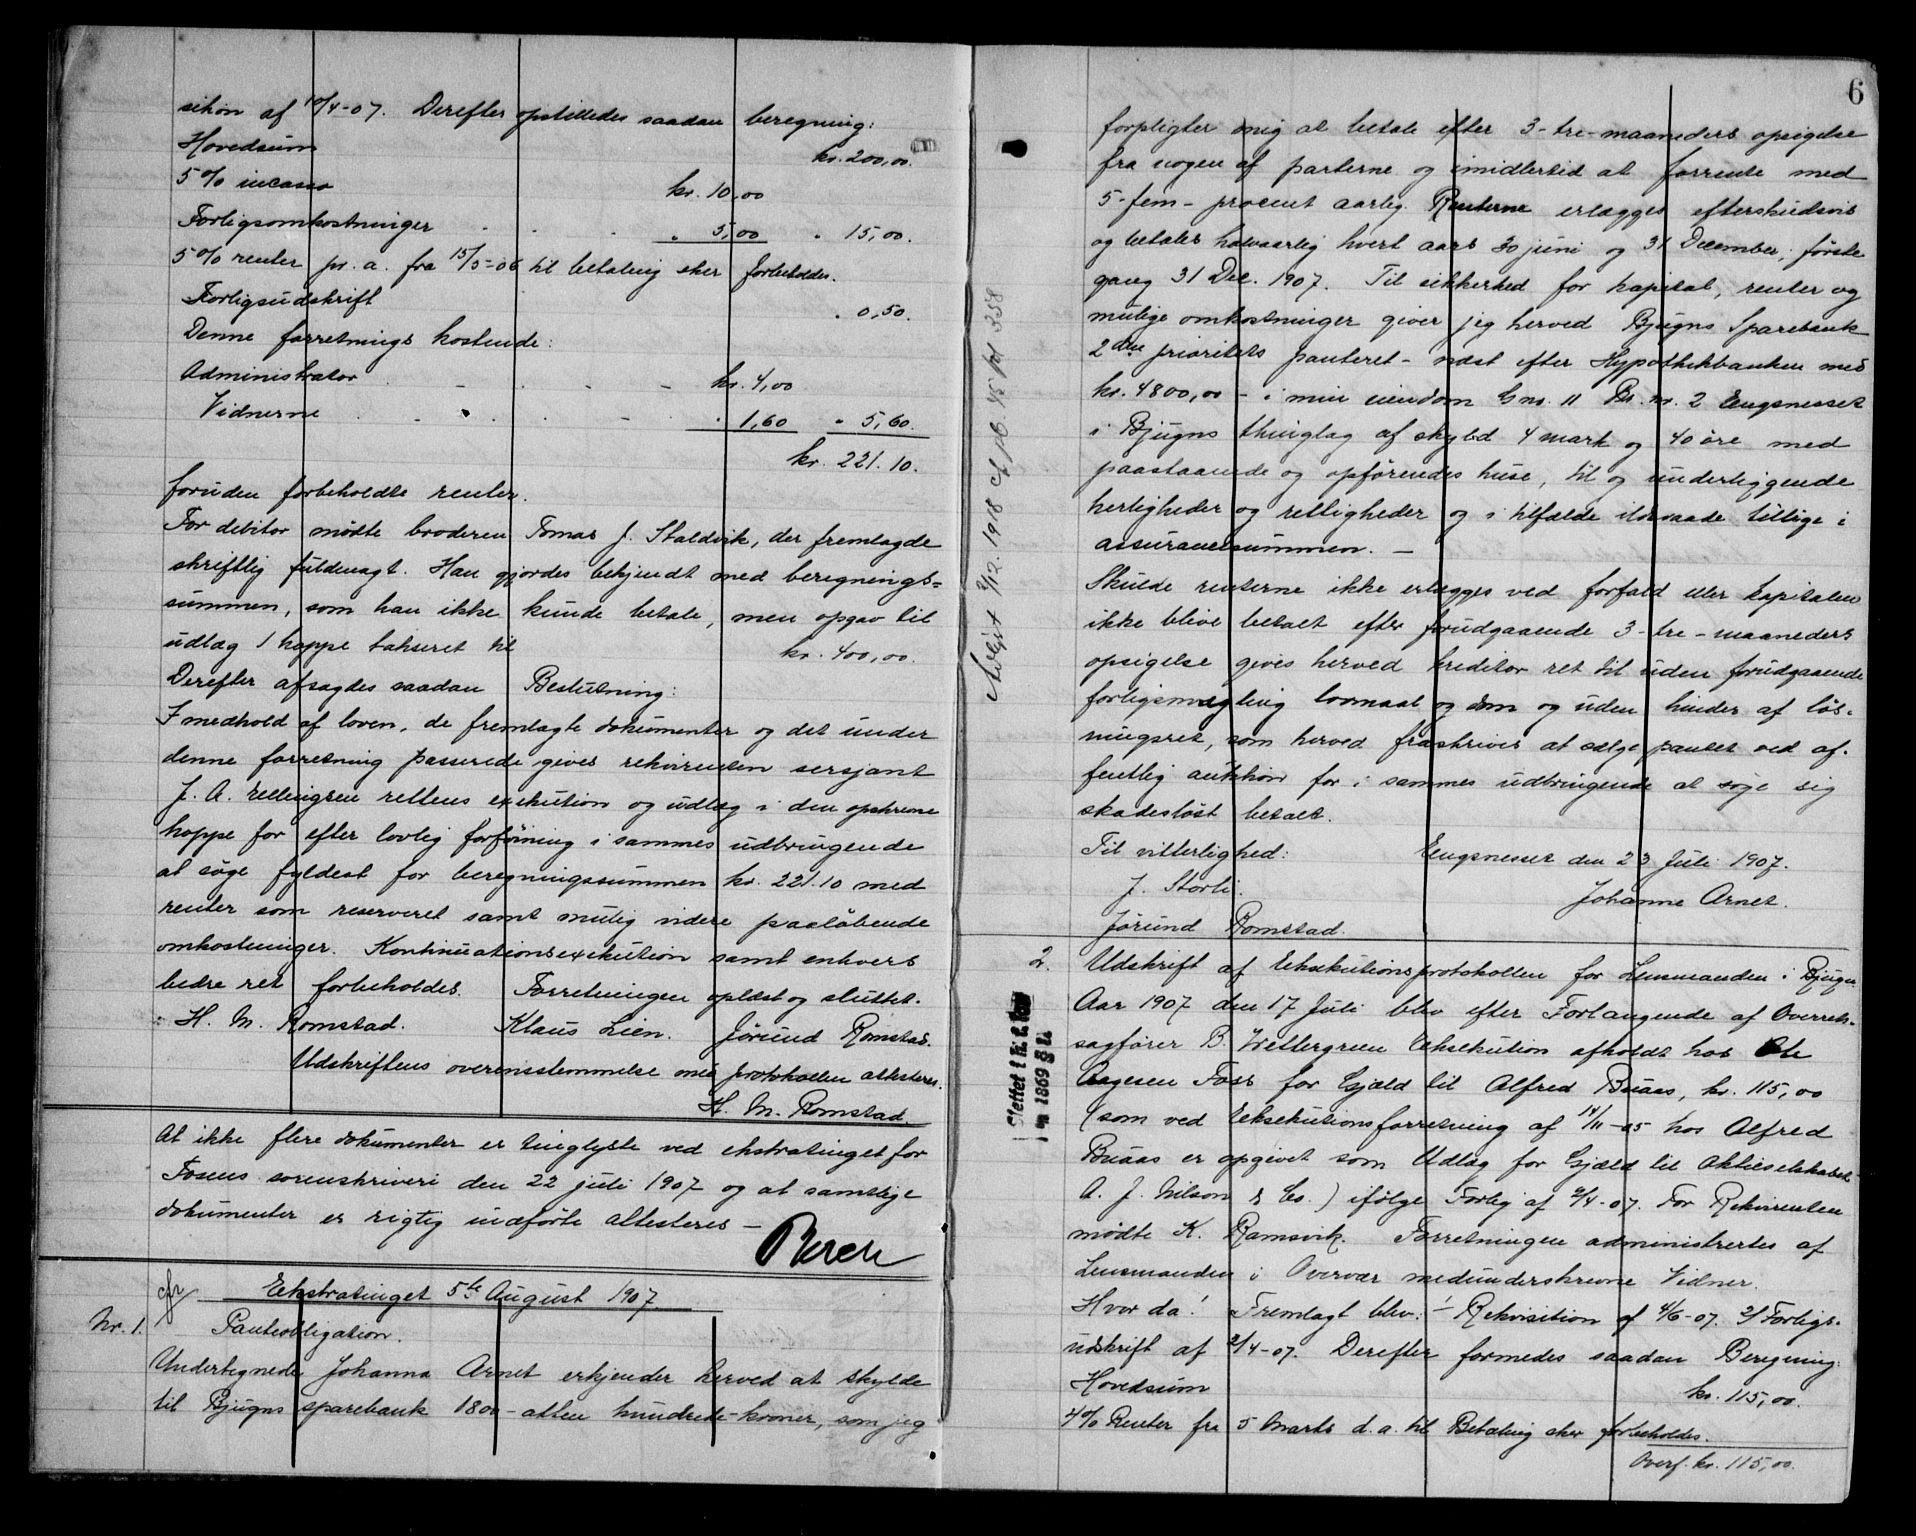 sition af 10/4-07. Derefter opstilledes saadan beregning:
Hovedsum kr. 200,00.
5% incasso kr. 10,00
Forligsomkostninger " 5,00 " 15,00.
5% renter pr. a. fra 15/5-06 til betaling sker forbeholdes.
Forligsudskrift " 0,50.
Denne forretnings kostende:
Administrator kr. 4,00
Vidnerne " 1,60 " 5,60.
kr. 221.10.
foruden forbeholdte renter.
For debitor mødte broderen Tomas J. Staldvik, der fremlagde
skriftlig fuldmagt. Han gjordes bekjendt med beregnings-
summen, som han ikke kunde betale, men opgav til
udlæg 1 hoppe takseret til kr. 400,00.
Derefter afsagdes saadan Beslutning:
I medhold af loven, de fremlagte dokumenter og det under
denne forretning passerede gives rekvirenten sersjant
J. A. Ellingsen rettens exekution og udlæg i den opskrevne
hoppe for efter lovlig forføining i sammes udbringende
at søge fyldest for beregningssummen kr. 221.10 med
renter som reserveret samt mulig videre paaløbende
omkostninger. Kontinuationsexekution samt enhvers
bedre ret forbeholdes. Forretningen oplæst og sluttet.
H. M. Romstad. Klaus Lien. Jørund Romstad.
Udskriftens overensstemmelse med protokollen attesteres.
H. M. Romstad.
At ikke flere dokumenter er tinglyste ved ekstratinget for
Fosens sorenskriveri den 22 juli 1907 og at samtlige
dokumenter er rigtig indførte attesteres —
cfr Ekstratinget 5te August 1907.
Nr. 1. Panteobligation.
Undertegnede Johanna Arnet erkjender herved at skylde
til Bjugns sparebank 1800 - atten hundrede - kroner, som jeg
6
forpligter mig at betale efter 3-tre-maaneders opsigelse
fra nogen af parterne og imidlertid at forrente med
5-fem- procent aarlig. Renterne erlægges efterskudsvis
og betales halvaarlig hvert aars 30 juni og 31 December, første
gang 31 Dec. 1907. Til sikkerhed for kapital, renter og
mulige omkostninger giver jeg herved Bjugns Sparebank
2den prioritets panteret - næst efter Hypothekbanken med
kr. 4800,00 - i min eiendom Gno. 11 Br. nr. 2 Engsnesset
i Bjugns thinglag af skyld 4 mark og 40 øre med
paastaaende og opførendes huse, til og underliggende
herligheder og rettigheder og i tilfælde ildsvaade tillige i
assurancesummen. —
Skulde renterne ikke erlægges ved forfald eller kapitalen
ikke blive betalt efter forudgaaende 3-tre-maaneders
opsigelse gives herved kreditor ret til uden forudgaaende
forligsmægling lovmaal og dom og uden hinder af løs-
ningsret, som herved fraskrives at sælge pantet ved of-
fentlig auktion for i sammes udbringende at søge sig
skadesløst betalt.
Til vitterlighed: Engsnesset den 23 Juli 1907.
J. Storli. Johanne Arnet.
Jørund Romstad.
Avlyst 2/12.1918
2. Udskrift af Eksekutionsprotokollen for Lensmanden i Bjugn.
Slettet i h. t. lov
1 m 1869 § 2
Aar 1907 den 17 Juli blev efter Forlangende af Overrets-
sagfører B. Wettergreen Eksekution afholdt hos Ole
Aagesen Foss for Gjæld til Alfred Buaas, kr. 115,00
(som ved Eeksekutionsforretning af 14/11-05 hos Alfred
Buaas er opgivet som Udlæg for Gjæld til Aktieselskabet
A. J. Nilson & Co.) ifølge Forlig af 2/4-07. For Rekvirenten
mødte K. Ramsvik. Forretningen administrertes af
Lensmanden i Overvær medunderskrevne Vidner.
Hvor da! Fremlagt blev: 1/ Rekvisition af 4/6-07. 2/ Forligs-
udskrift af 2/4-07. Derefter formedes saadan Beregning:
Hovedsum kr. 115,00.
4% Renter fra 5 Marts d. a. til Betaling sker forbeholdes.
Overf. kr. 115,00.